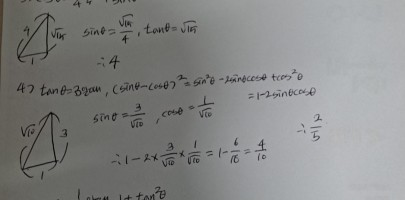 4 √15 sinθ = √15/4 , tanθ = √15
1
∴ 4
4> tanθ=3 , (sinθ-cosθ)² = sin²θ - 2sinθcosθ + cos²θ
= 1-2sinθcosθ
sinθ = 3/√10 , cosθ = 1/√10
√10 3
1
∴ 1 - 2 × 3/√10 × 1/√10 = 1 - 6/10 = 4/10 ∴ 2/5
1+tan²θ